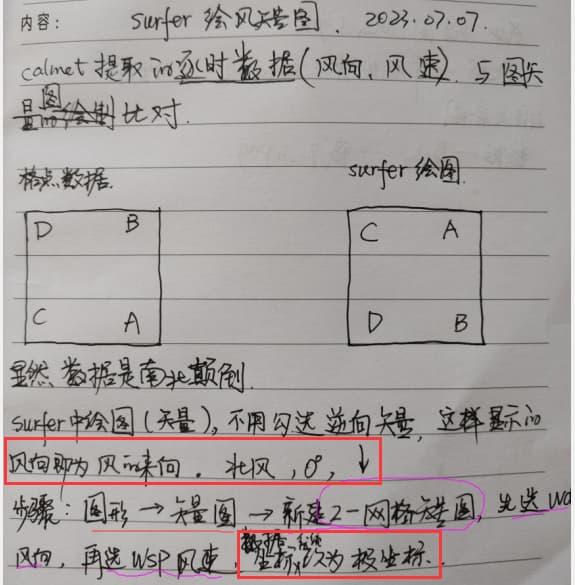 内容: surfer 绘风矢量图. 2023.07.07.
calmet 提取的逐时数据(风向、风速). 与图矢
量图 比对.
格点数据. surfer 绘图.
D B C A
C A D B
显然, 数据是南北颠倒.
surfer中绘图(矢量), 不用勾选 逆向矢量, 这样显示的
风向即为风的来向. 北风, 0°, ↓
步骤: 图形 → 矢量图 → 新建 2-网格矢量图, 先选 Wd
风向, 再选 WSP 风速, 坐标 为极坐标.